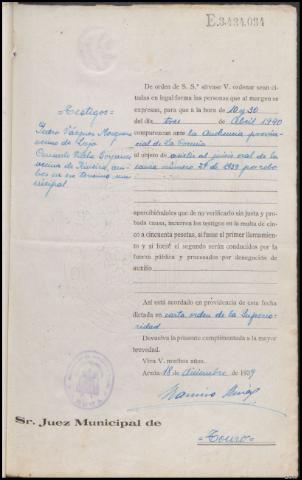 E.3434.034
De orden de S. S.ª sírvase V. ordenar sean ci-
tadas en legal forma las personas que al margen se
expresan, para que a la hora de 10 y 30
del día tres de Abril 1940
comparezcan ante la Audiencia provin-
cial de La Coruña
al objeto de asistir al juicio oral de la
causa número 27 de 1939 por robo
apercibiéndoles que de no verificarlo sin justa y pro-
bada causa, incurren los testigos en la multa de cin-
co a cincuenta pesetas, si fuese el primer llamamiento
y si fuere el segundo serán conducidos por la
fuerza pública y procesados por denegación de
auxilio
Así está acordado en providencia de esta fecha
dictada en carta orden de la Superio-
ridad
Devuelva la presente cumplimentada a la mayor
brevedad.
Viva V. muchos años.
Arzúa 18 de diciembre de 1939
Testigos
Pedro Vázquez
vecino de
Consuelo
vecina de
en término mu-
nicipal
Sr. Juez Municipal de
Touro